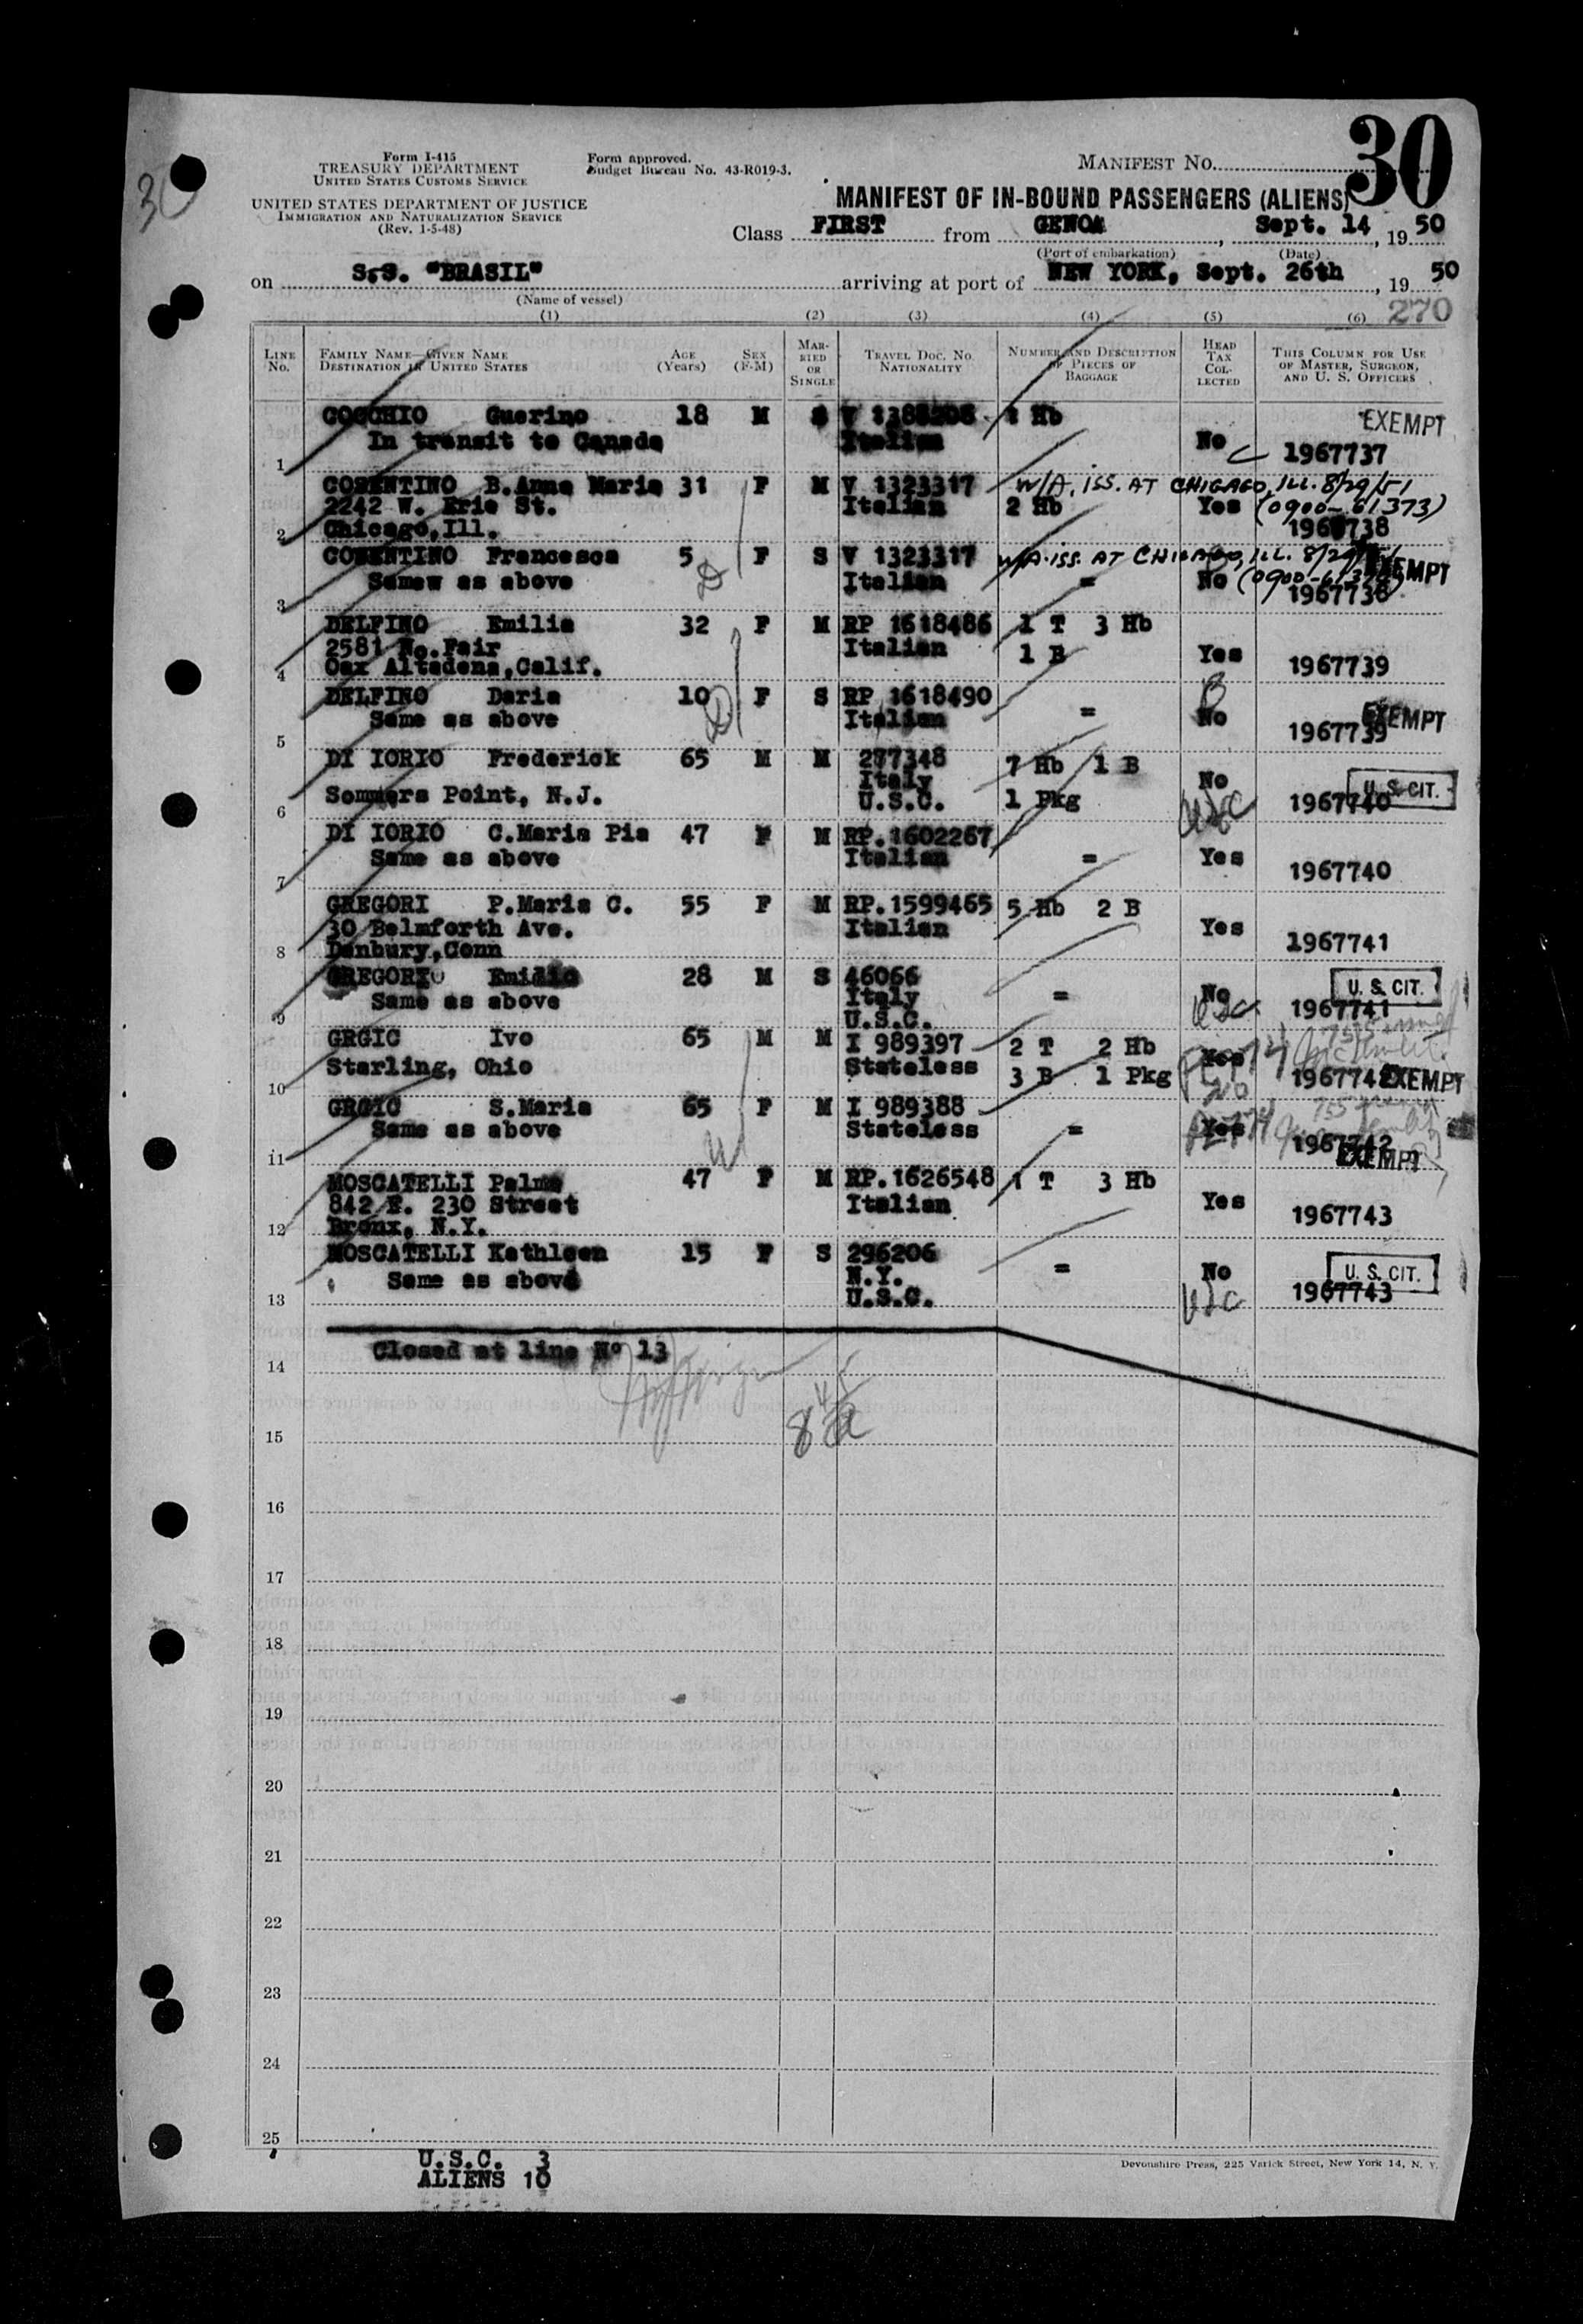 30
30
Form I-415
TREASURY DEPARTMENT
UNITED STATES CUSTOMS SERVICE
UNITED STATES DEPARTMENT OF JUSTICE
IMMIGRATION AND NATURALIZATION SERVICE
(Rev. 1-5-48)
Form approved.
Budget Bureau No. 43-R019-3.
MANIFEST No.
MANIFEST OF IN-BOUND PASSENGERS (ALIENS)
Class FIRST from GENOA, Sept. 14, 1950
(Port of embarkation) (Date)
on S.S. "BRASIL" arriving at port of NEW YORK, Sept. 26th, 1950
(Name of vessel)
270
(1) (2) (3) (4) (5) (6)
LINE No. FAMILY NAME—GIVEN NAME DESTINATION IN UNITED STATES AGE (Years) SEX (F-M) MARRIED OR SINGLE TRAVEL DOC. NO. NATIONALITY NUMBER AND DESCRIPTION OF PIECES OF BAGGAGE HEAD TAX COLLECTED THIS COLUMN FOR USE OF MASTER, SURGEON, AND U. S. OFFICERS
COCCHIO Guerino 18 M S V 1388208 1 Hb EXEMPT
In transit to Canada Italian No
1 C 1967737
COSENTINO B.Anna Maria 31 F M V 1323317 W/A. ISS. AT CHICAGO, ILL. 8/29/51
2242 W. Erie St. Italian 2 Hb Yes (0900-61373)
2 Chicago,Ill. 1967738
COSENTINO Francesca 5 F S V 1323317 W/A. ISS. AT CHICAGO, ILL. EXEMPT
Samew as above D Italian = No
3 1967738
DELFINO Emilia 32 F M RP 1618486 1 T 3 Hb
2581 No.Fair Italian 1 B Yes
4 Oax Altadena,Calif. 1967739
DELFINO Daria 10 F S RP 1618490 EXEMPT
Same as above D Italian = No
5 1967739
DI IORIO Frederick 65 M M 277348 7 Hb 1 B No
Italy U. S. CIT.
6 Sommers Point, N.J. U.S.C. 1 Pkg USC 1967740
DI IORIO C.Maria Pia 47 F M RP.1602267
Same as above Italian = Yes
7 1967740
GREGORI P.Maria C. 55 F M RP.1599465 5 Hb 2 B
30 Belmforth Ave. Italian Yes
8 Danbury,Conn 1967741
GREGORI Emidio 28 M S 46066 U. S. CIT.
Same as above Italy = No
9 U.S.C. USC 1967741
GRGIC Ivo 65 M M I 989397 2 T 2 Hb
Starling, Ohio Stateless 3 B 1 Pkg Yes
10 1967742 EXEMPT
GRGIC S.Maria 65 F M I 989388
Same as above Stateless = Yes
11 1967742 EXEMPT
MOSCATELLI Palma 47 F M RP.1626548 1 T 3 Hb
842 E. 230 Street Italian Yes
12 Bronx, N.Y. 1967743
MOSCATELLI Kathleen 15 F S 296206
Same as above N.Y. = No U. S. CIT.
13 U.S.C. USC 1967743
Closed at line No 13
14
15
16
17
18
19
20
21
22
23
24
25
U.S.C. 3
ALIENS 10
Devonshire Press, 225 Varick Street, New York 14, N. Y.